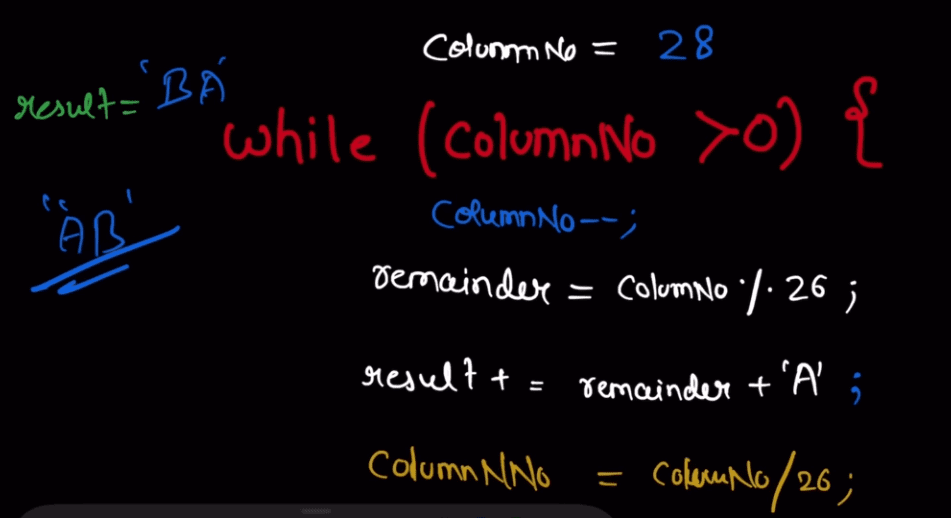 ColumnNo = 28
result = 'BA'
while (ColumnNo >0) {
"AB"
ColumnNo--;
remainder = ColumNo % 26 ;
result + = remainder + 'A' ;
ColumnNNo = ColumNo/26 ;